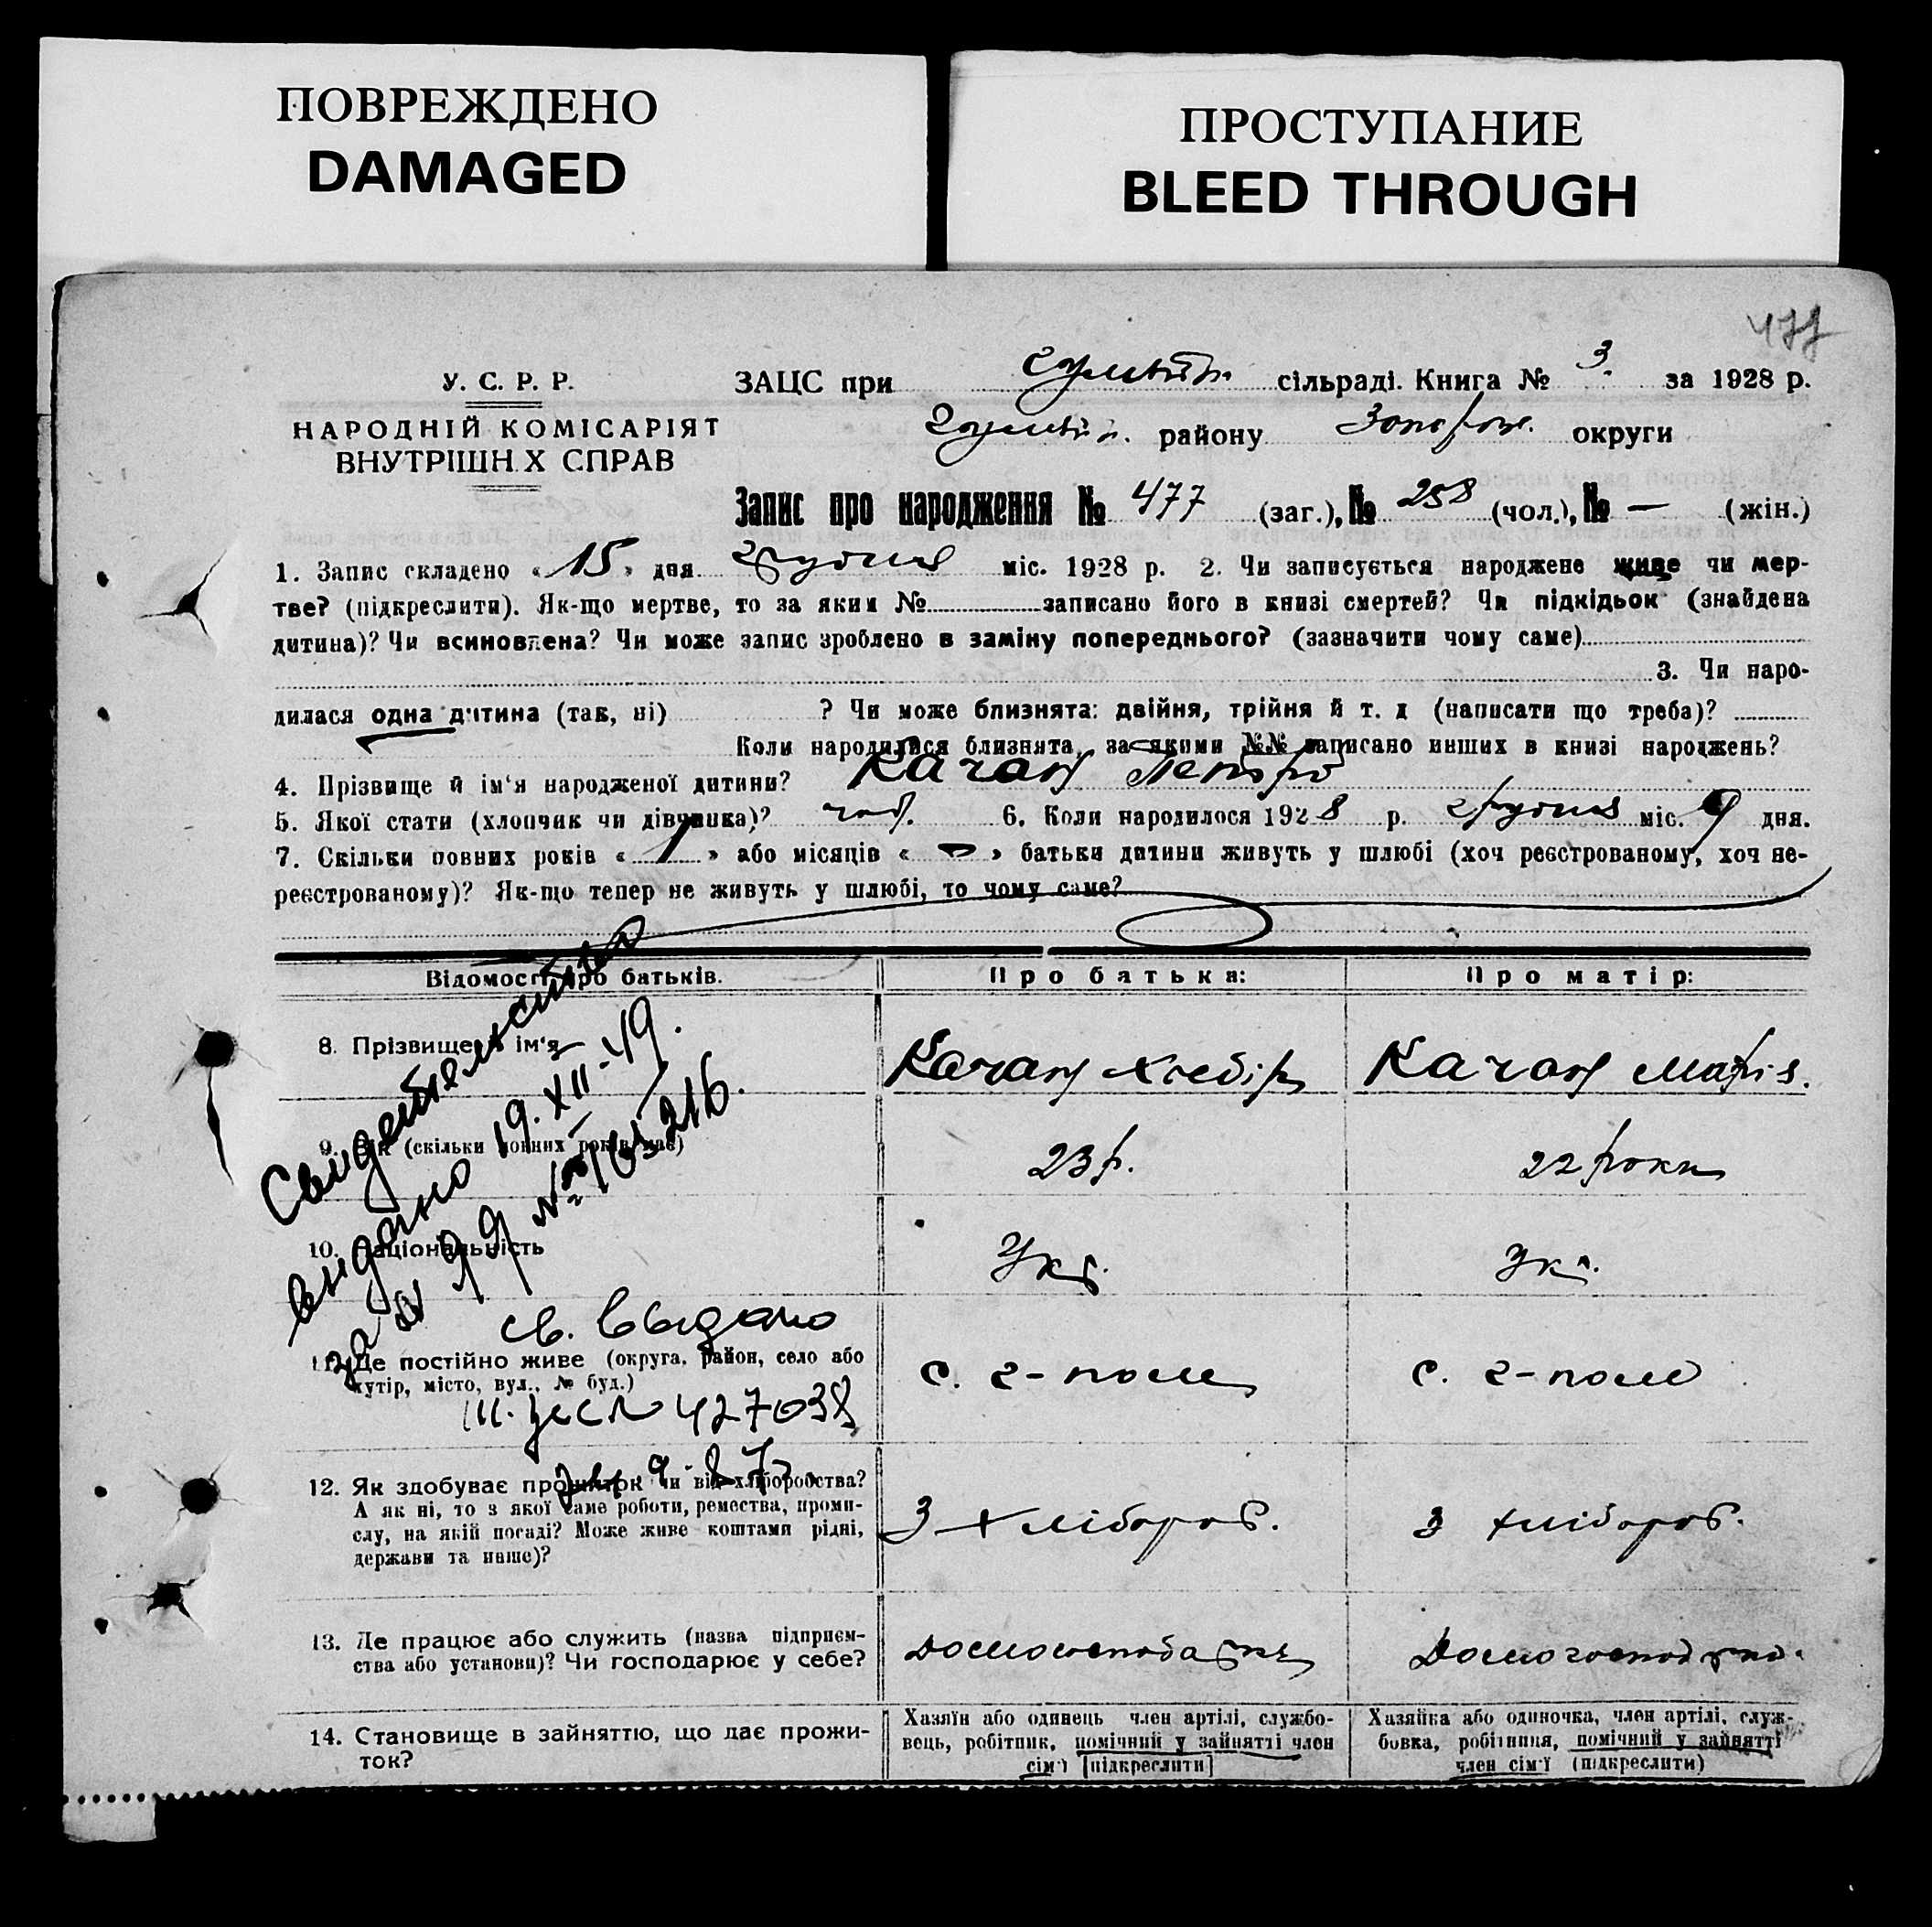 ПОВРЕЖДЕНО
DAMAGED
ПРОСТУПАНИЕ
BLEED THROUGH
477
У. С. Р. Р.
НАРОДНІЙ КОМІСАРІЯТ
ВНУТРІШН Х СПРАВ
ЗАЦС при сільраді. Книга № 3. за 1928 р.
району Запоріж. округи
Запис про народження № 477 (заг.), № 258 (чол.), № — (жін.)
1. Запис складено «15» дня грудня міс. 1928 р. 2. Чи записується народжене живе чи мер-
тве? (підкреслити). Як-що мертве, то за яким № записано його в книзі смертей? Чи підкідьок (знайдена
дитина)? Чи всиновлена? Чи може запис зроблено в заміну попереднього? (зазначити чому саме)
3. Чи наро-
дилася одна дитина (так, ні) ? Чи може близнята: двійня, трійня й т. д (написати що треба)?
Коли народилися близнята, за якими №№ записано инших в книзі народжень?
4. Прізвище й ім'я народженої дитини? Качан Петро
5. Якої стати (хлопчик чи дівчинка)? чол. 6. Коли народилося 1928 р. грудня міс. 9 дня.
7. Скільки повних років «1» або місяців « » батьки дитини живуть у шлюбі (хоч реєстрованому, хоч не-
реєстрованому)? Як-що тепер не живуть у шлюбі, то чому саме?
Відомості про батьків. Про батька: Про матір:
8. Прізвище й ім'я Качан Качан Марія.
9. Вік (скільки повних років має) 23 р. 22 роки
10. Національність Укр. Укр.
11. Де постійно живе (округа, район, село або
хутір, місто, вул., № буд.) с. г-поле с. г-поле
12. Як здобуває прожиток чи від хліборобства?
А як ні, то з якої саме роботи, ремества, проми-
слу, на якій посаді? Може живе коштами рідні,
держави та инше)? З хлібороб. З хлібороб.
13. Де працює або служить (назва підприєм-
ства або установи)? Чи господарює у себе?
14. Становище в зайняттю, що дає прожи-
ток?
Хазяїн або одинець член артілі, службо-
вець, робітник, помічний у зайнятті член
сім'ї [підкреслити]
Хазяйка або одиночка, член артілі, служ-
бовка, робітниця, помічний у зайнятті
член сім'ї (підкреслити)
Свидетельство
выдано 19.XII-49.
за № 99
св. выдано
427038